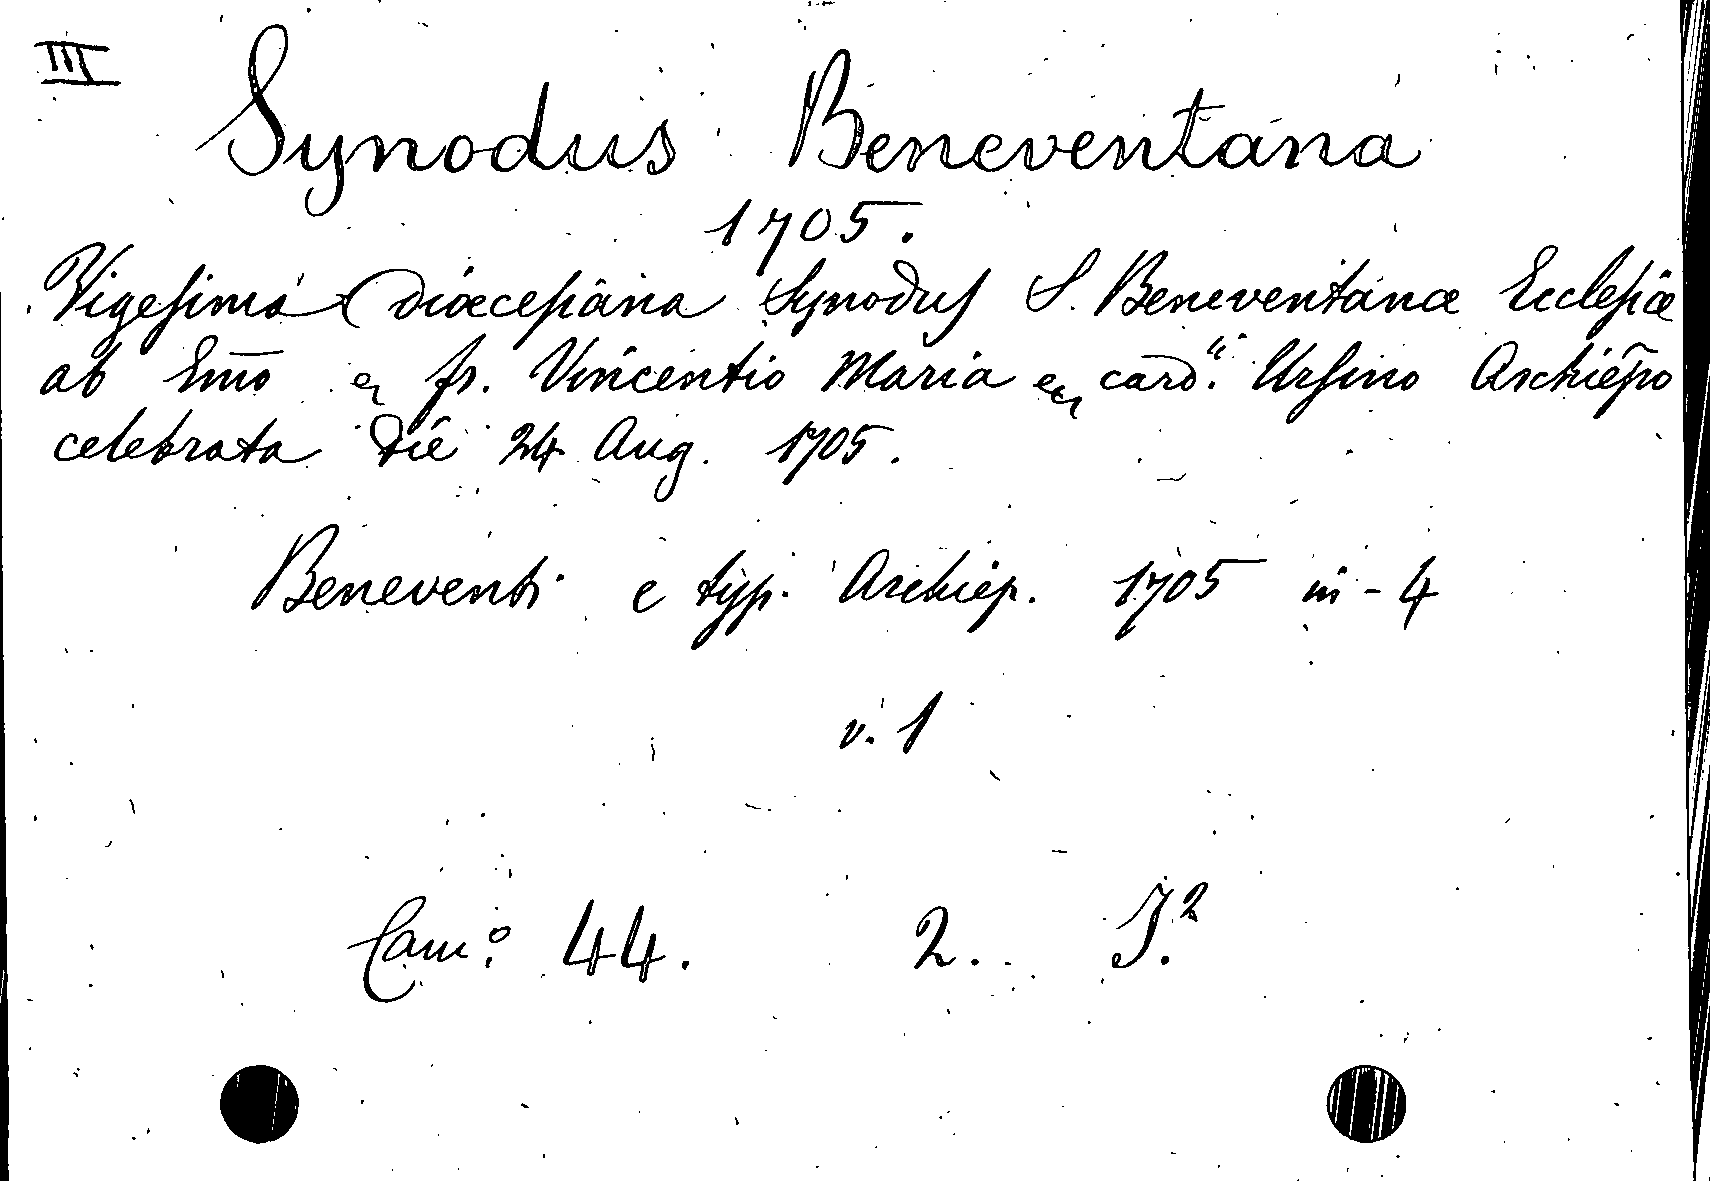 III
Synodus Beneventana
1705.
Vigesima diœcesana Synodus S. Beneventanæ Ecclesiæ
ab Em̄o fr. Vincentio Maria card. Ursino Archiep̄o
celebrata die 24 Aug. 1705.
Beneventi e typ. Archiep. 1705 in-4
v. 1
Cam.º 44. 2. J.²